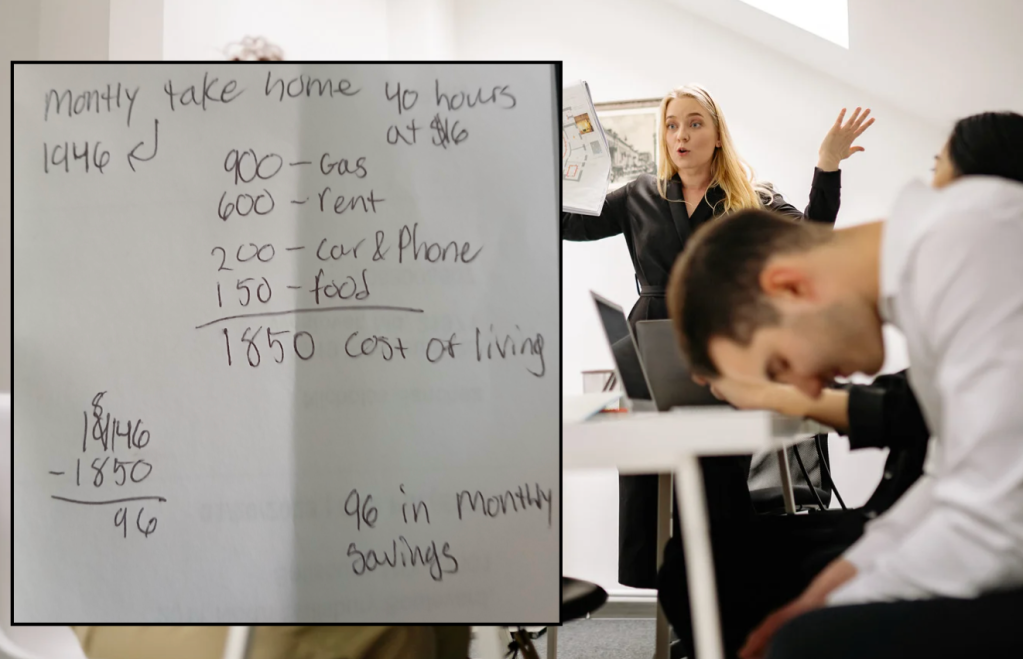 montly take home 40 hours
at $16
1946
900 - Gas
600 - rent
200 - car & Phone
150 - food
1850 cost of living
8
19146
-1850
96
96 in monthly
savings